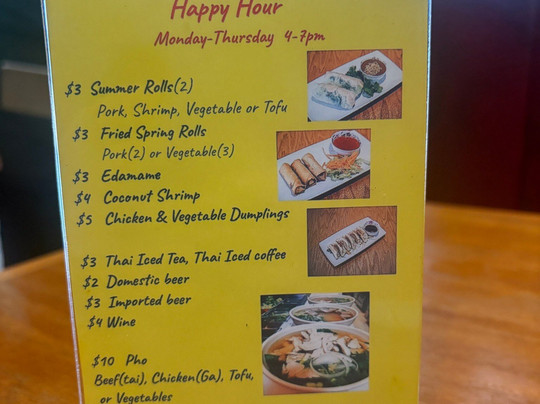 Happy Hour
Monday-Thursday 4-7pm
$3 Summer Rolls(2)
Pork, Shrimp, Vegetable or Tofu
$3 Fried Spring Rolls
Pork(2) or Vegetable(3)
$3 Edamame
$4 Coconut Shrimp
$5 Chicken & Vegetable Dumplings
$3 Thai Iced Tea, Thai Iced coffee
$2 Domestic beer
$3 Imported beer
$4 Wine
$10 Pho
Beef(tai), Chicken(Ga), Tofu,
or Vegetables